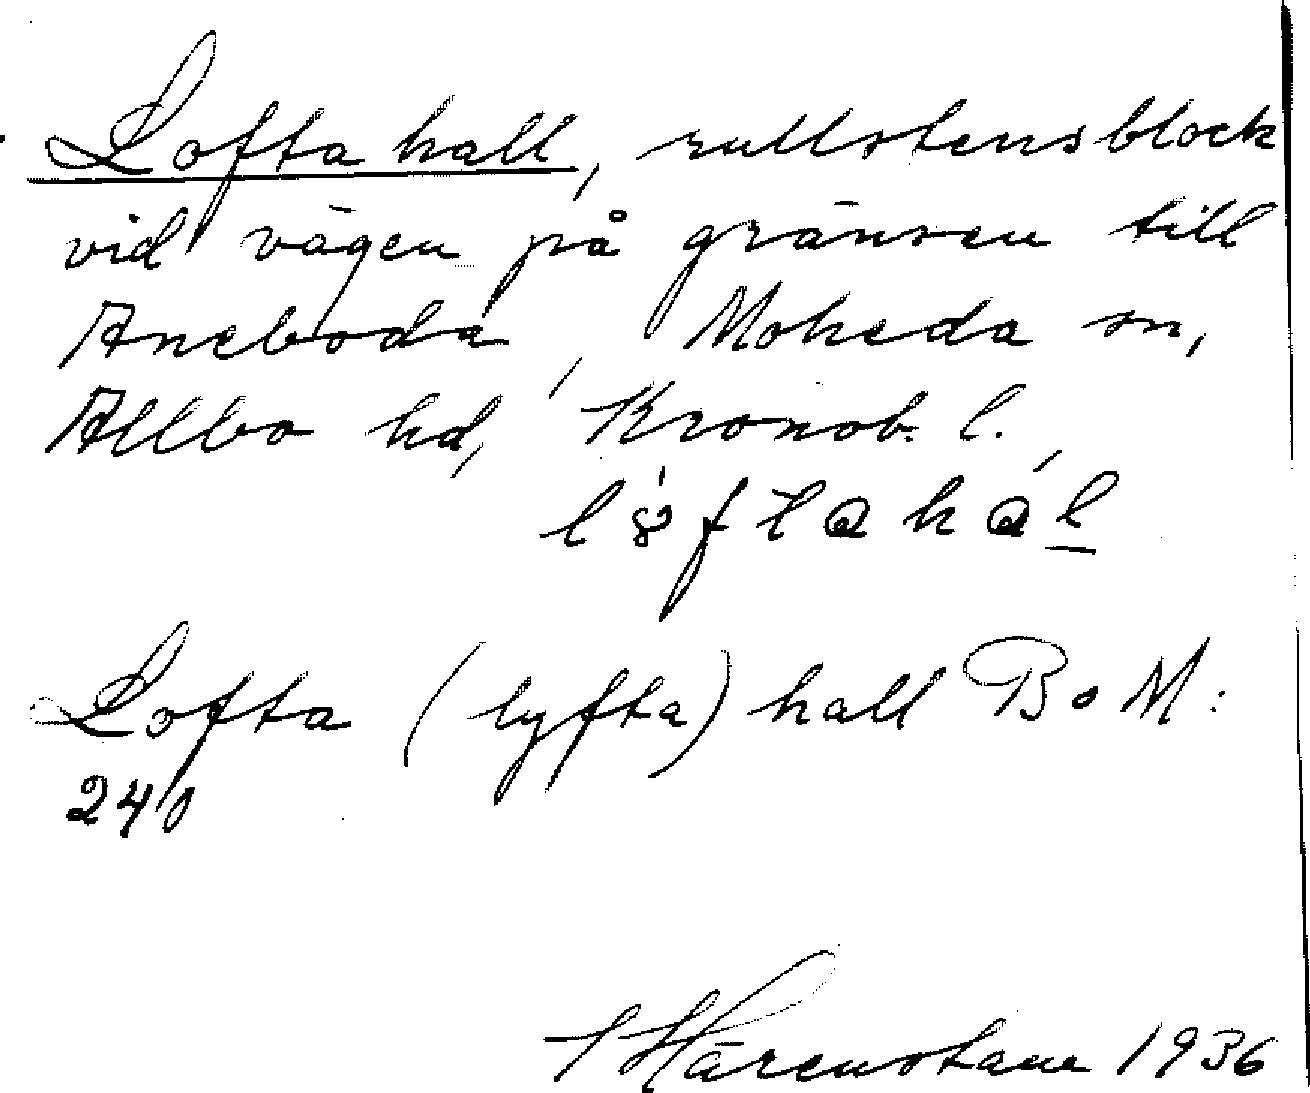 Lofta hall, rullstensblock
vid vägen på gränsen till
Aneboda, Moheda sn,
Allbo hd, Kronob. l.
Lofta (lyfta) hall BoM:
240
1936